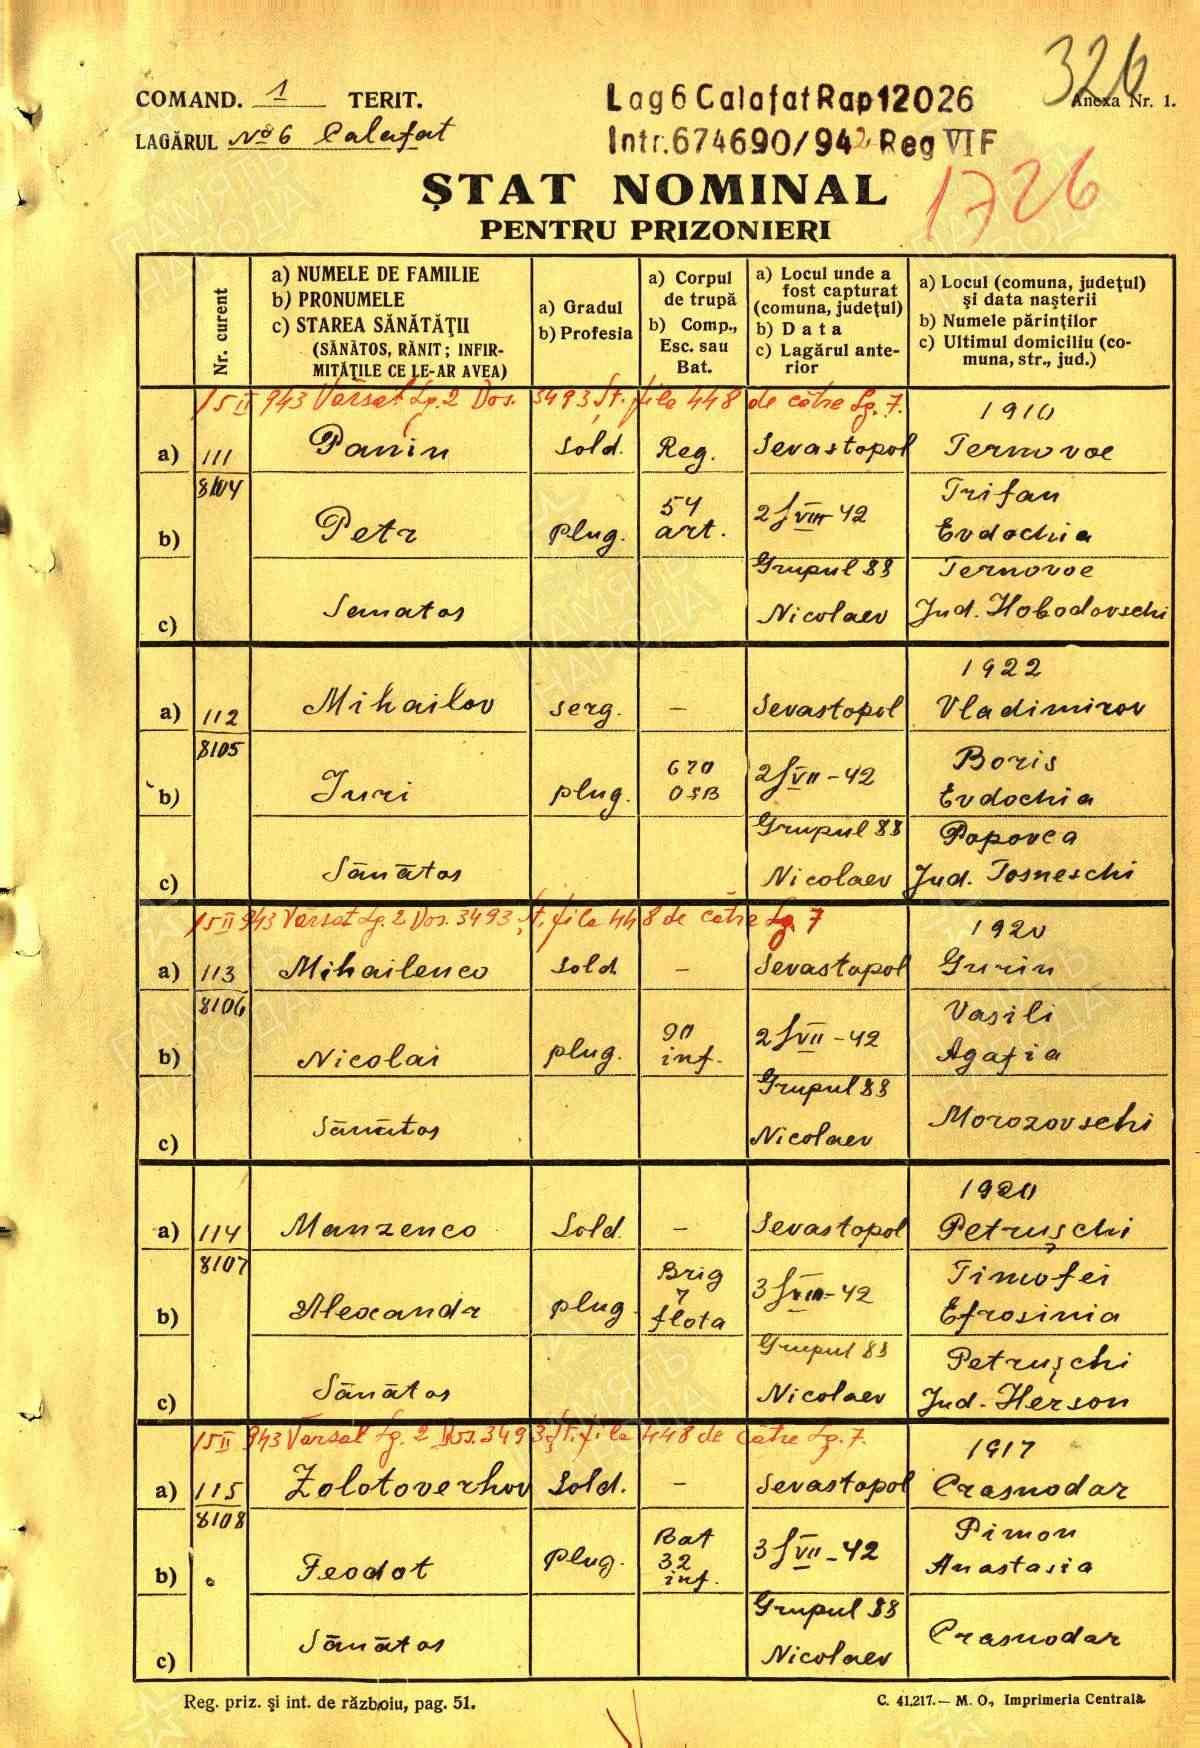 326
COMAND. 1 TERIT.
Lag 6 Calafat Rap 12026
Anexa Nr. 1.
LAGĂRUL No 6 Calafat
Intr. 674690/942 Reg VI F
ȘTAT NOMINAL
1726
PENTRU PRIZONIERI
Nr. curent
a) NUMELE DE FAMILIE
b) PRONUMELE
c) STAREA SĂNĂTĂŢII
(SĂNĂTOS, RĂNIT; INFIR-
MITĂŢILE CE LE-AR AVEA)
a) Gradul
b) Profesia
a) Corpul
de trupă
b) Comp.,
Esc. sau
Bat.
a) Locul unde a
fost capturat
(comuna, judeţul)
b) Data
c) Lagărul ante-
rior
a) Locul (comuna, judeţul)
şi data naşterii
b) Numele părinţilor
c) Ultimul domiciliu (co-
muna, str., jud.)
15 II 943 Vărsat Lg. 2 Dos. 3493 St. fila 448 de către Lg. 7.
1910
a) 111 Panin Sold. Reg. Sevastopol Ternovoe
8104
b) Petr plug. 54 art. 2/VIII-42 Trifan
Evdochia
c) Sematos Grupul 88 Nicolaev Ternovoe
Jud. Hobodovschi
1922
a) 112 Mihailov serg. — Sevastopol Vladimirov
8105
b) Iuri plug. 670 OSB 2/VII-42 Boris
Evdochia
c) Sănătos Grupul 88 Nicolaev Popovca
Jud. Tosneschi
15 II 943 Vărsat Lg. 2 Dos. 3493 St. fila 448 de către Lg. 7
1920
a) 113 Mihailenco Sold — Sevastopol Gurin
8106
b) Nicolai plug. 90 inf. 2/VII-42 Vasili
Agafia
c) Sănătos Grupul 88 Nicolaev Morozovschi
1920
a) 114 Manzenco Sold. — Sevastopol Petruşchi
8107
b) Alexandr plug. Brig 7 flota 3/VII-42 Timofei
Efrosinia
c) Sănătos Grupul 88 Nicolaev Petruşchi
Jud. Herson
15 II 943 Vărsat Lg. 2 Dos. 3493 St. fila 448 de către Lg. 7.
1917
a) 115 Zolotoverhov Sold. — Sevastopol Crasnodar
8108
b) Feodot plug. Bat 32 inf. 3/VII-42 Pimon
Anastasia
c) Sănătos Grupul 88 Nicolaev Crasnodar
Reg. priz. şi int. de războiu, pag. 51.
C. 41.217.— M. O., Imprimeria Centrală
ПАМЯТЬ НАРОДА